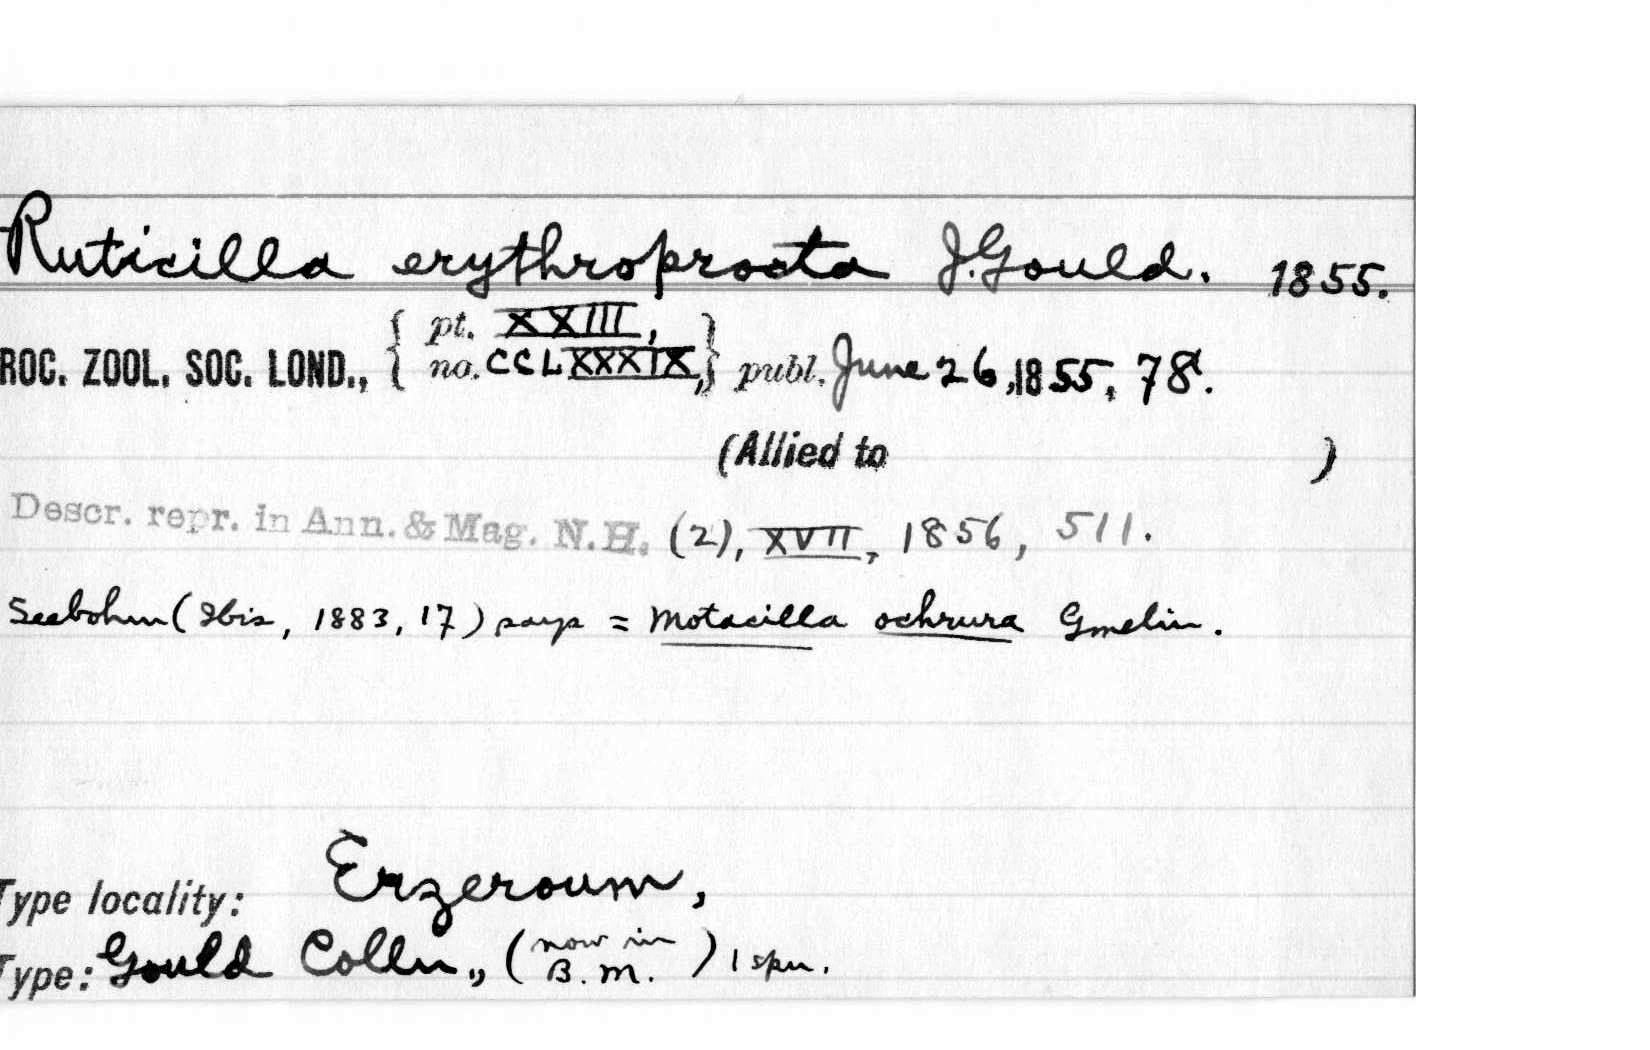 Ruticilla erythroprocta J. Gould. 1855.
pt. XXIII,
ROC. ZOOL. SOC. LOND., { no. CCLXXXIX, } publ. June 26, 1855, 78.
(Allied to )
Descr. repr. in Ann. & Mag. N.H. (2), XVII, 1856, 511.
Seebohm (Ibis, 1883, 17) says = Motacilla ochrura Gmelin.
Type locality: Erzeroum,
Type: Gould Colln., (now in B.M.) 1 spn.